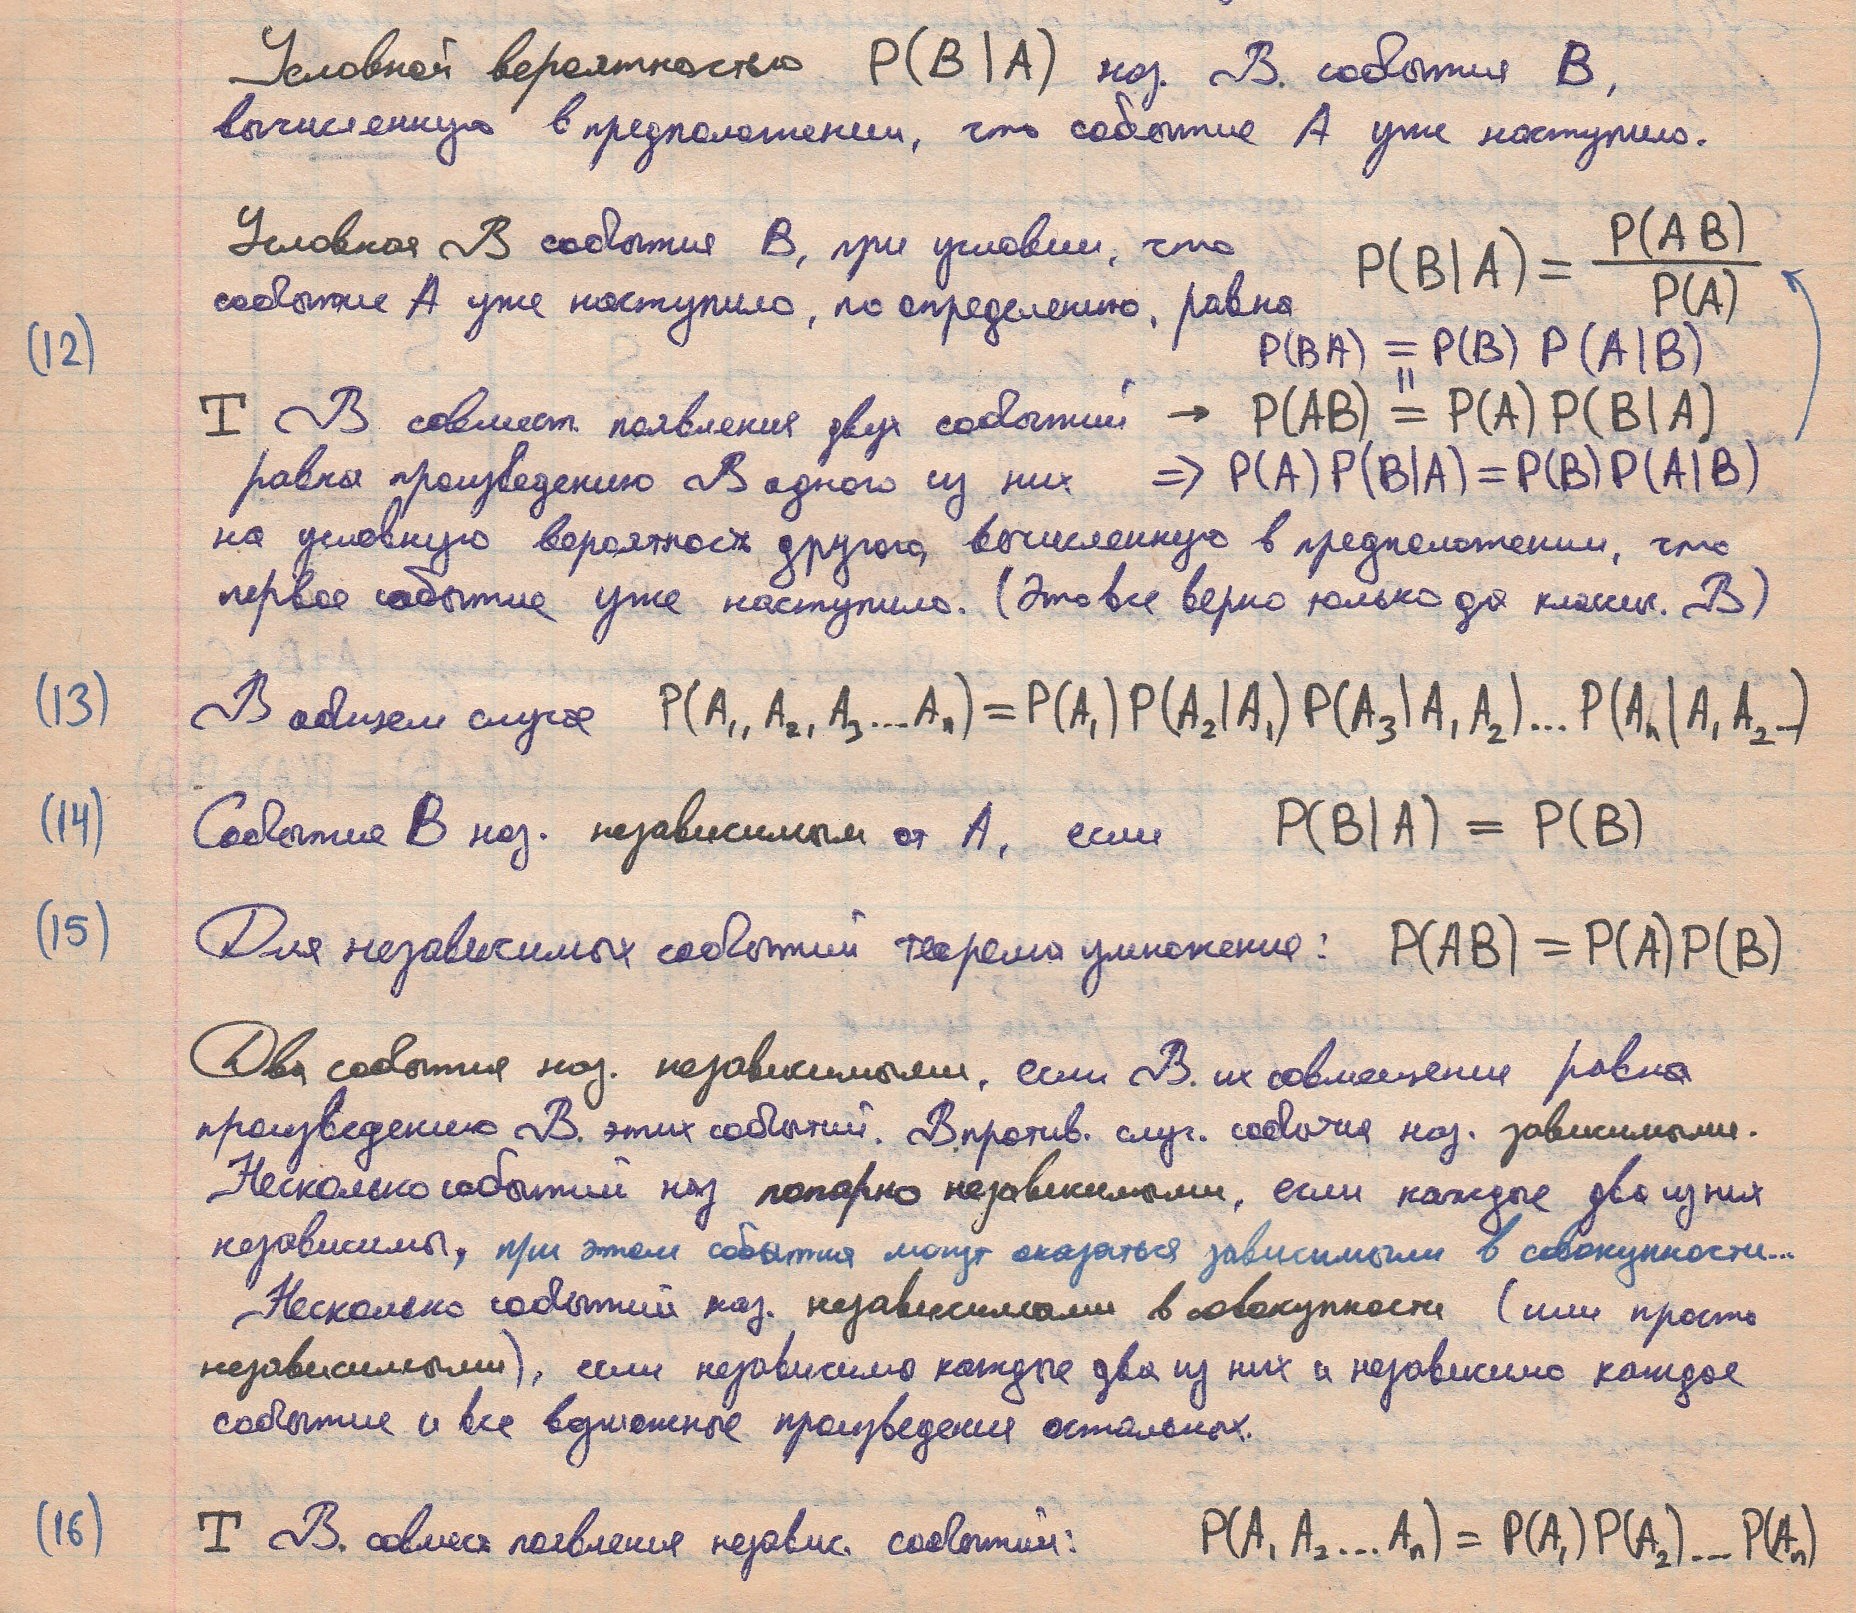 Условной вероятностью P(B|A) наз. В. события B,
вычисленную в предположении, что событие A уже наступило.
Условная В события B, при условии, что
событие A уже наступило, по определению, равна
P(B|A) = P(AB) / P(A)
(12)
P(BA) = P(B) P(A|B)
=
Т В совмест. появления двух событий → P(AB) = P(A) P(B|A)
равна произведению В одного из них => P(A)P(B|A) = P(B)P(A|B)
на условную вероятность другого, вычисленную в предположении, что
первое событие уже наступило. (Это все верно только для классич. В)
(13) В общем случае P(A₁, A₂, A₃...Aₙ) = P(A₁)P(A₂|A₁)P(A₃|A₁A₂)... P(Aₙ|A₁A₂...)
(14) Событие B наз. независимым от A, если P(B|A) = P(B)
(15) Для независимых событий теорема умножения: P(AB) = P(A)P(B)
Два события наз. независимыми, если В. их совмещения равна
произведению В. этих событий. В против. случ. события наз. зависимыми.
Несколько событий наз попарно независимыми, если каждые два из них
независимы, при этом события могут оказаться зависимыми в совокупности...
Несколько событий наз. независимыми в совокупности (или просто
независимыми), если независимы каждые два из них и независимо каждое
событие и все возможные произведения остальных.
(16) Т В. совмест появления независ. событий: P(A₁A₂...Aₙ) = P(A₁)P(A₂)...P(Aₙ)